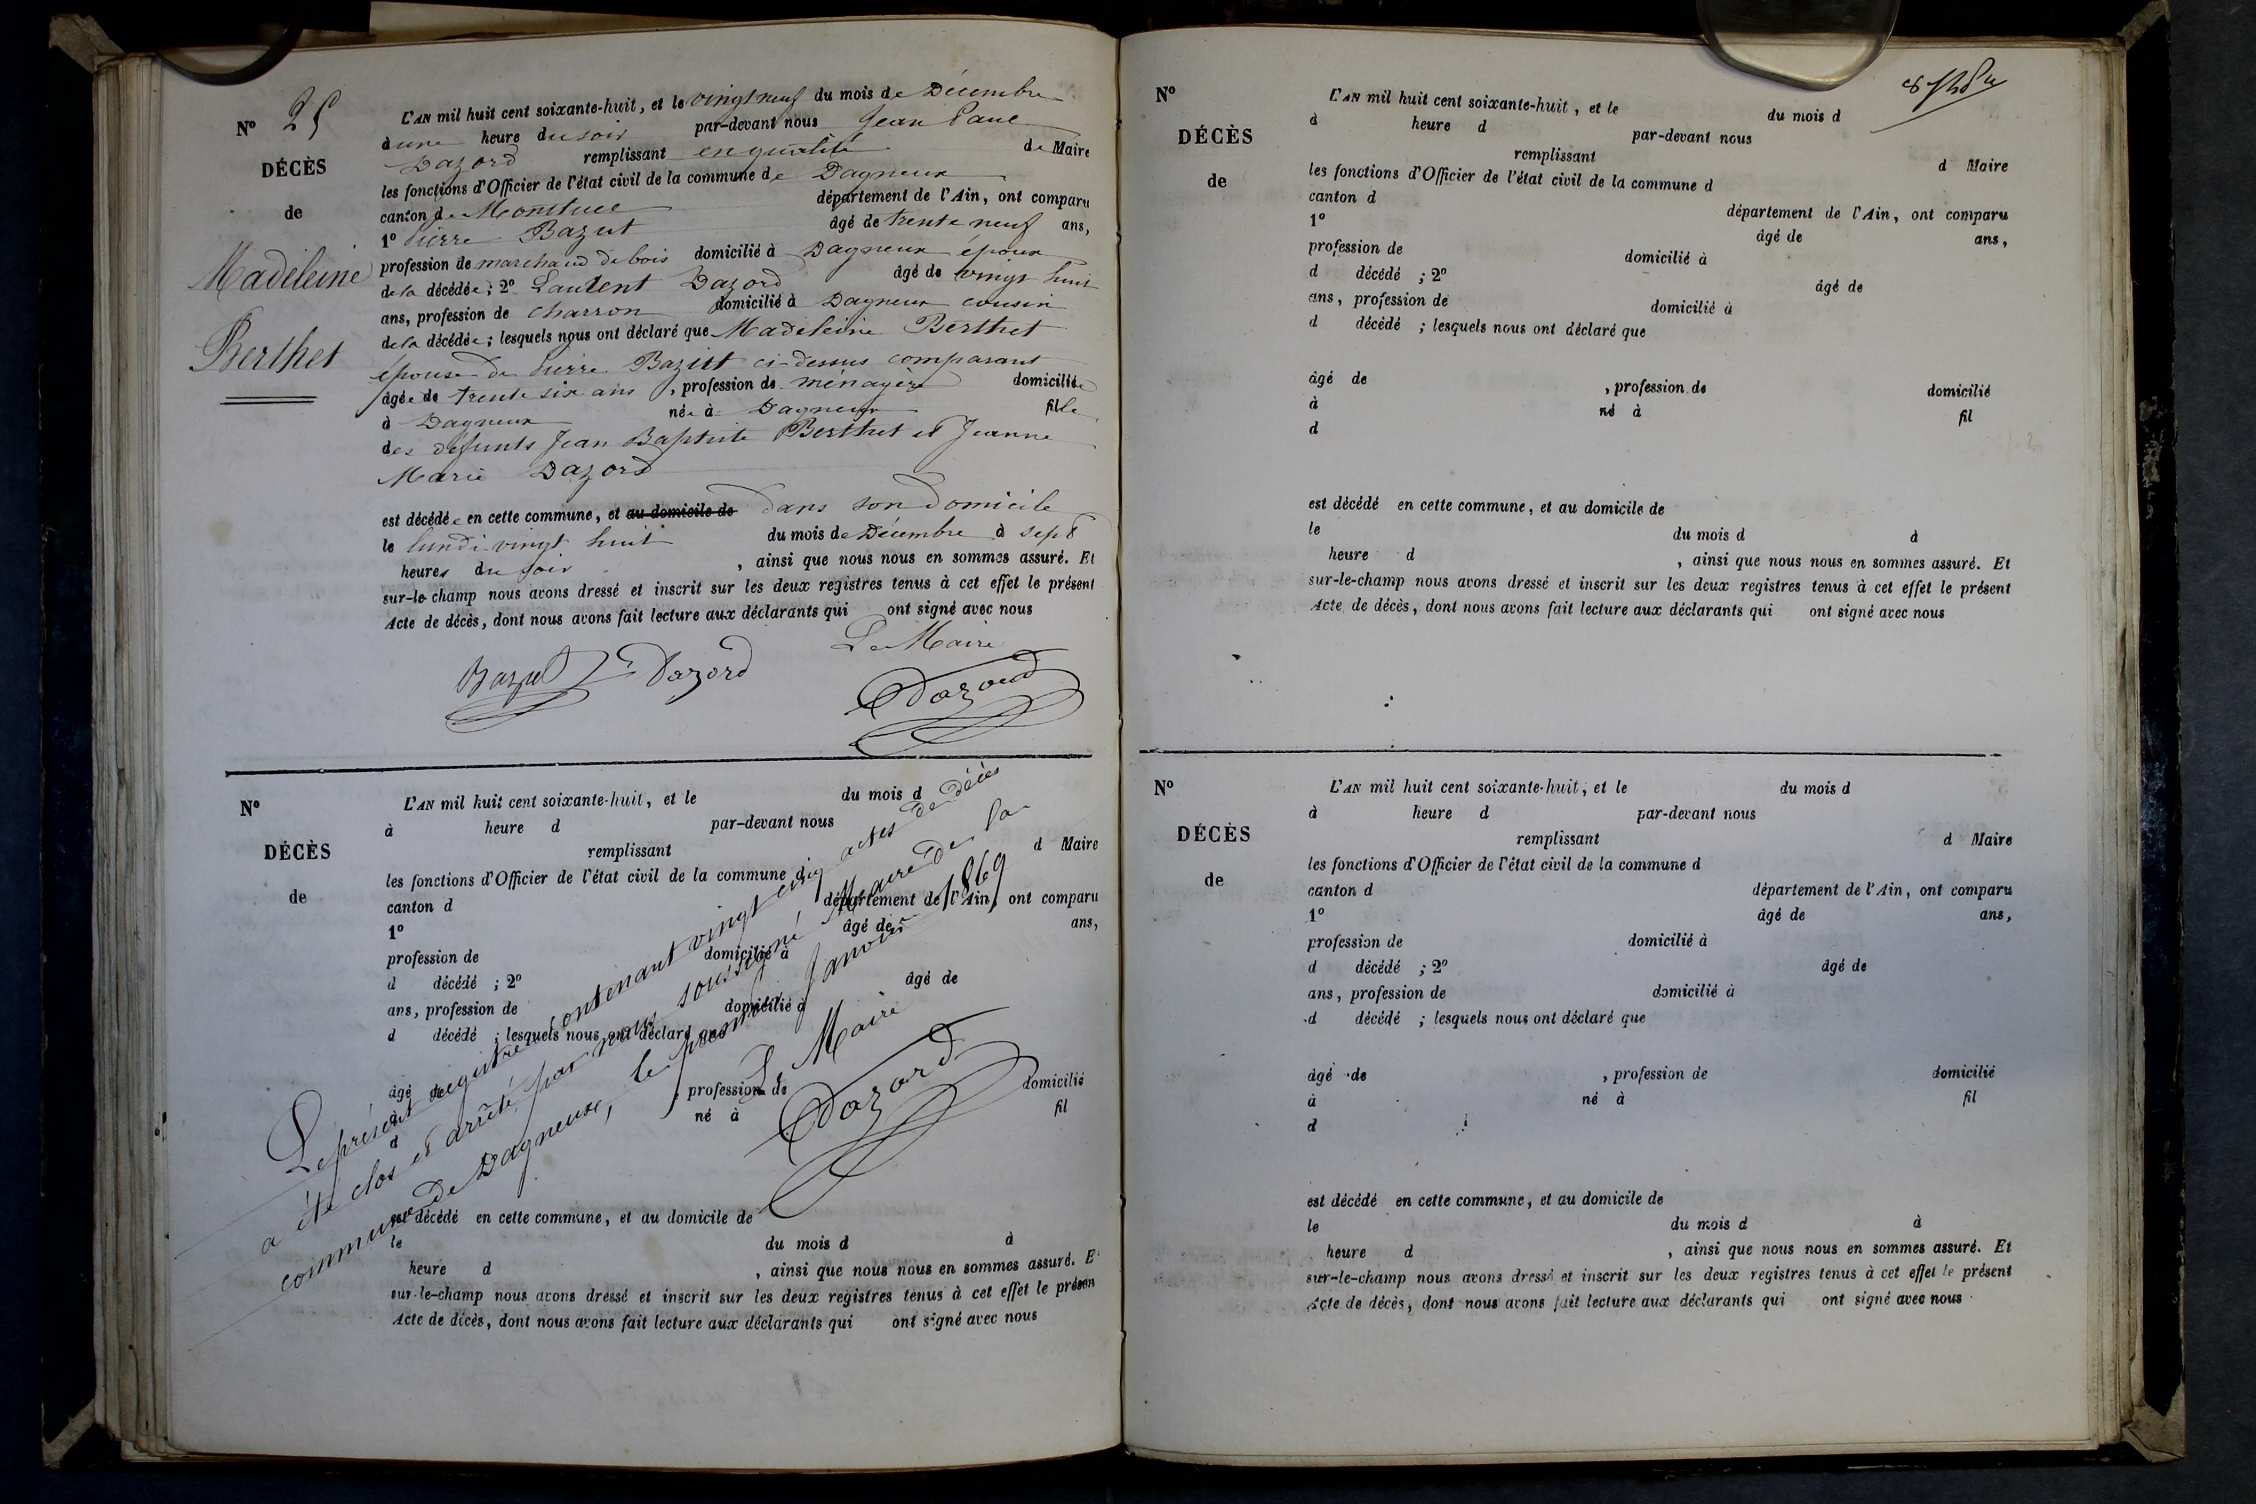 N° 25
DÉCÈS
de
Madeleine
Berthet
L'AN mil huit cent soixante-huit, et le vingt neuf du mois de Décembre
à une heure du soir par-devant nous Jean Paul
Dazord remplissant en qualité de Maire
les fonctions d'Officier de l'état civil de la commune de Dagneux
canton de Montluel département de l'Ain, ont comparu
1° Pierre Bazut âgé de trente neuf ans,
profession de marchand de bois domicilié à Dagneux époux
de la décédée ; 2° Laurent Dazord âgé de vingt huit
ans, profession de charron domicilié à Dagneux cousin
de la décédée ; lesquels nous ont déclaré que Madeleine Berthet
épouse de Pierre Bazut ci-dessus comparant
âgée de trente six ans , profession de ménagère domiciliée
à Dagneux née à Dagneux fille
des défunts Jean Baptiste Berthet et Jeanne
Marie Dazord
est décédée en cette commune, et au domicile de dans son domicile
le lundi vingt huit du mois de Décembre à sept
heures du soir , ainsi que nous nous en sommes assuré. Et
sur-le-champ nous avons dressé et inscrit sur les deux registres tenus à cet effet le présent
Acte de décès, dont nous avons fait lecture aux déclarants qui ont signé avec nous
Le Maire
Bazut Dazord Dazord
N°
DÉCÈS
de
L'AN mil huit cent soixante-huit, et le du mois d
à heure d par-devant nous
remplissant d Maire
les fonctions d'Officier de l'état civil de la commune d
canton d département de l'Ain, ont comparu
1° âgé de ans,
profession de domicilié à
d décédé ; 2° âgé de
ans, profession de domicilié à
d décédé ; lesquels nous ont déclaré que
âgé de , profession de domicilié
à né à fil
d
est décédé en cette commune, et au domicile de
le du mois d à
heure d , ainsi que nous nous en sommes assuré. Et
sur-le-champ nous avons dressé et inscrit sur les deux registres tenus à cet effet le présen
Acte de décès, dont nous avons fait lecture aux déclarants qui ont signé avec nous
Le présent registre contenant vingt cinq actes de décès
a été clos et arrêté par nous soussigné Maire de la
commune de Dagneux, le premier Janvier 1869
Le Maire
Dazord
N°
DÉCÈS
de
L'AN mil huit cent soixante-huit, et le du mois d
à heure d par-devant nous
remplissant d Maire
les fonctions d'Officier de l'état civil de la commune d
canton d département de l'Ain, ont comparu
1° âgé de ans,
profession de domicilié à
d décédé ; 2° âgé de
ans, profession de domicilié à
d décédé ; lesquels nous ont déclaré que
âgé de , profession de domicilié
à né à fil
d
est décédé en cette commune, et au domicile de
le du mois d à
heure d , ainsi que nous nous en sommes assuré. Et
sur-le-champ nous avons dressé et inscrit sur les deux registres tenus à cet effet le présent
Acte de décès, dont nous avons fait lecture aux déclarants qui ont signé avec nous
N°
DÉCÈS
de
L'AN mil huit cent soixante-huit, et le du mois d
à heure d par-devant nous
remplissant d Maire
les fonctions d'Officier de l'état civil de la commune d
canton d département de l'Ain, ont comparu
1° âgé de ans,
profession de domicilié à
d décédé ; 2° âgé de
ans, profession de domicilié à
d décédé ; lesquels nous ont déclaré que
âgé de , profession de domicilié
à né à fil
d
est décédé en cette commune, et au domicile de
le du mois d à
heure d , ainsi que nous nous en sommes assuré. Et
sur-le-champ nous avons dressé et inscrit sur les deux registres tenus à cet effet le présent
Acte de décès, dont nous avons fait lecture aux déclarants qui ont signé avec nous